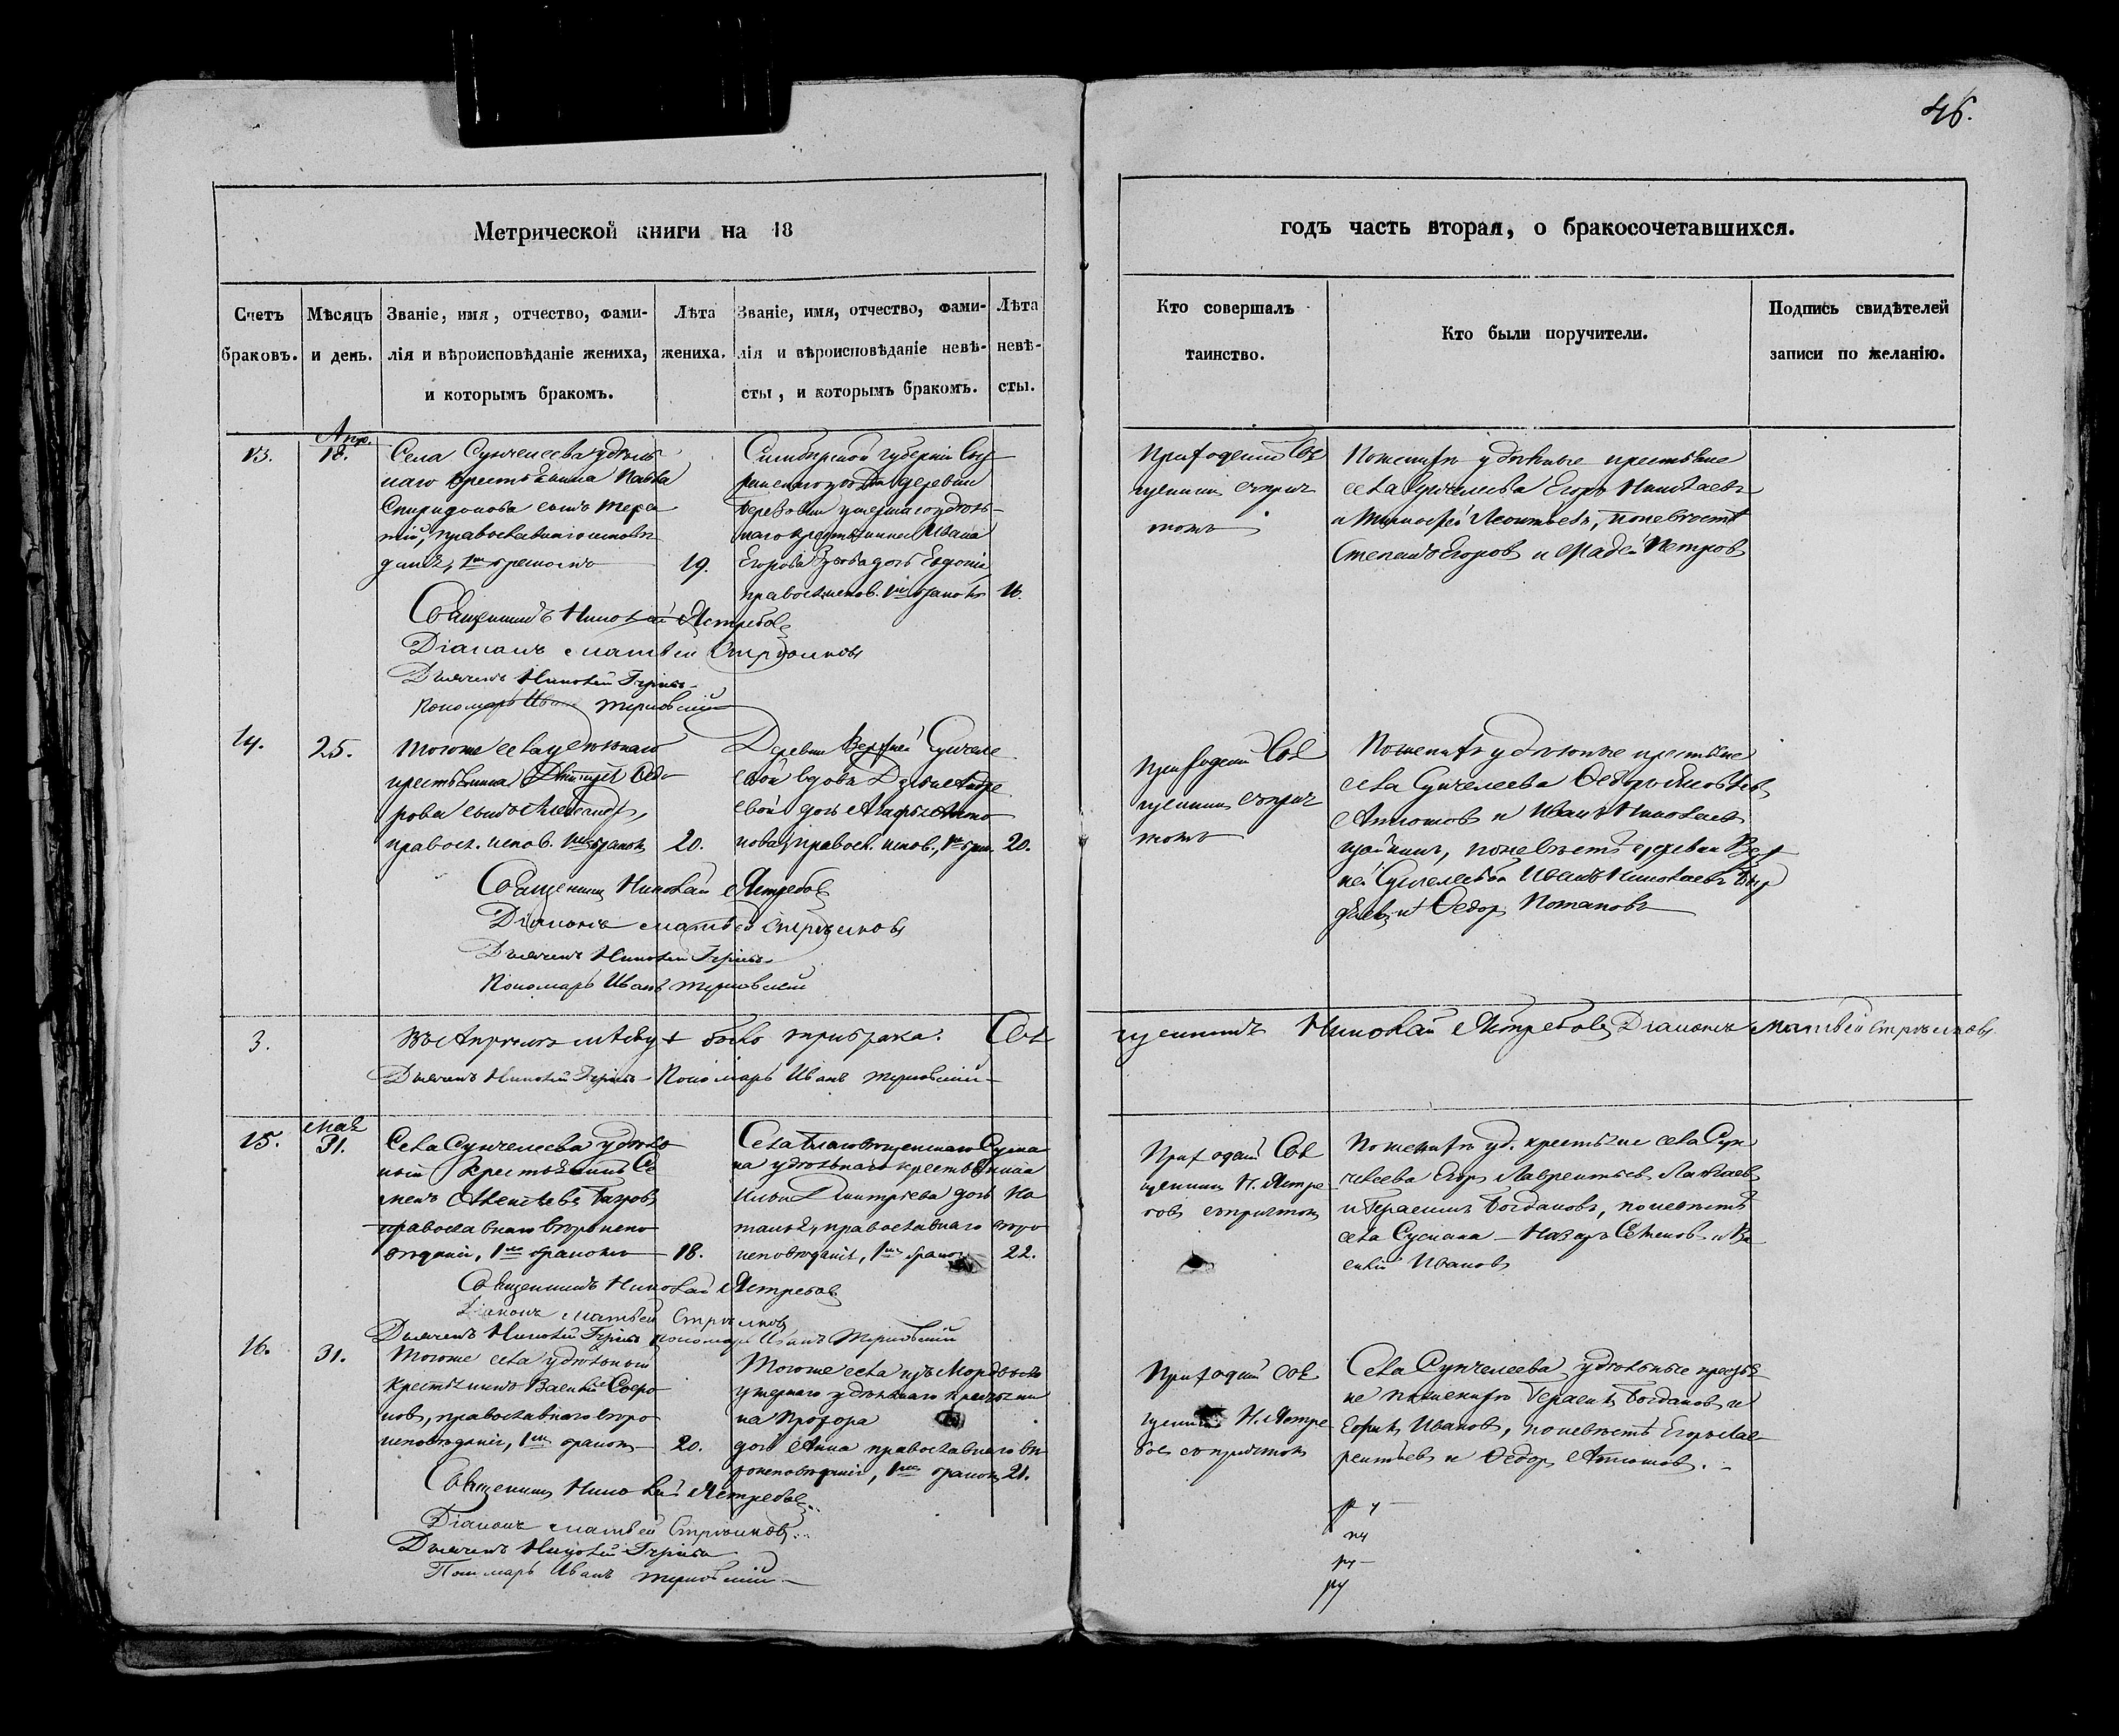 46.
Метрической книги на 18
годъ часть вторая, о бракосочетавшихся.
Счетъ браковъ.
Мѣсяцъ и день.
Званіе, имя, отчество, фами-
лія и вѣроисповѣданіе жениха,
и которымъ бракомъ.
Лѣта
жениха.
Званіе, имя, отчество, фами-
лія и вѣроисповѣданіе невѣ-
сты, и которымъ бракомъ.
Лѣта
невѣ-
сты.
Кто совершалъ
таинство.
Кто были поручители.
Подпись свидѣтелей
записи по желанію.
13.
Апр.
18.
Села Сунчелеева удѣль
наго крестьянина Павла
Спиридонова сынъ
православнаго
1мъ бракомъ
19.
Симбирской губерніи
деревни
Березовки умершаго удѣль-
наго крестьянина Ивана
Егорова дочь
1мъ бракомъ
16.
Приходскій Свя
щенникъ съ прич
томъ
По женихѣ удѣльные крестьяне
села Сунчелеева Егоръ Николаевъ
и Тимофей Леонтьевъ, по невѣстѣ
Степанъ Егоровъ и Фадей Петровъ
Священникъ Николай Ястребовъ
Діаконъ Матвей Стрѣлковъ
Дьячекъ Николай
Пономарь Иванъ Терновскій
14.
25.
Тогоже села удѣльнаго
крестьянина Дмитрія Ѳедо
рова сынъ Александръ,
правосл. испов. 1мъ бракомъ
20.
Деревни Верхней Сунчеле
евой вдовы Андре
евой дочь Агафья
правосл. испов., 1мъ брак.
20.
Приходскій Свя
щенникъ съ прич
томъ
По женихѣ удѣльные крестьяне
села Сунчелеева Ѳедоръ Яковлевъ
Антоновъ и Иванъ Николаевъ
по невѣстѣ деревни Верх
ней Сунчелеевой Иванъ Николаевъ
и Ѳедоръ Потаповъ
Священникъ Николай Ястребовъ
Діаконъ Матвей Стрѣлковъ
Дьячекъ Николай
Пономарь Иванъ Терновскій
3.
Въ Апрѣлѣ мѣсяцѣ было три брака. Свя
щенникъ Николай Ястребовъ Діаконъ Матвей Стрѣлковъ
Дьячекъ Николай Пономарь Иванъ Терновскій
15.
Мая
31.
Села Сунчелеева удѣль
ный крестьянинъ Се
менъ Алексѣевъ
православнаго вѣроиспо
вѣданія, 1мъ бракомъ
18.
Села Благовѣщенскаго Суска
на удѣльнаго крестьянина
Ильи Дмитріева дочь На
талья, православнаго вѣро
исповѣданія, 1мъ бракомъ
22.
Приходскій Свя
щенникъ Н. Ястре
бовъ съ причтомъ
По женихѣ уд. крестьяне села Сун
челеева Егоръ Лаврентьевъ
и Герасимъ Богдановъ, по невѣстѣ
села Сускана Назаръ Семеновъ и Ва
силій Ивановъ
Священникъ Николай Ястребовъ
Діаконъ Матвей Стрѣлковъ
Дьячекъ Николай Пономарь Иванъ Терновскій
16.
31.
Тогоже села удѣльный
крестьянинъ Василій Софро
новъ, православнаго вѣро
исповѣданія, 1мъ бракомъ
20.
Тогоже села изъ Мордовъ
умершаго удѣльнаго крестьяни
на Прохора
дочь Анна православнаго вѣ
роисповѣданія, 1мъ бракомъ
21.
Приходскій Свя
щенникъ Н. Ястре
бовъ съ причтомъ
Села Сунчелеева удѣльные крестья
не по женихѣ Герасимъ Богдановъ и
Ефимъ Ивановъ, по невѣстѣ Егоръ Лав
рентьевъ и Ѳедоръ Антоновъ.
Священникъ Николай Ястребовъ
Діаконъ Матвей Стрѣлковъ
Дьячекъ Николай
Пономарь Иванъ Терновскій